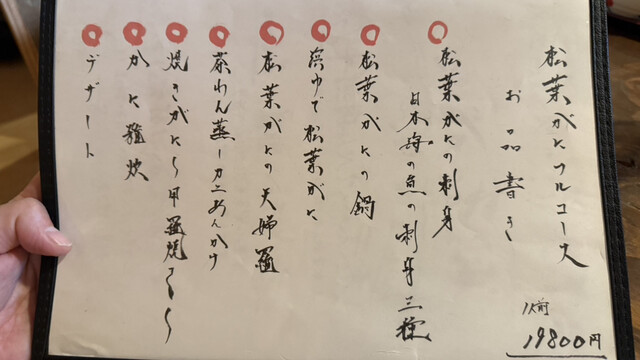 松葉がにフルコース
お品書き
1人前
19800円
松葉がにの刺身
日本海の魚の刺身三種
松葉がにの鍋
浜ゆで松葉がに
松葉がにの天婦羅
茶わん蒸し カニあんかけ
焼きがに〜甲羅焼き〜
かに雑炊
デザート